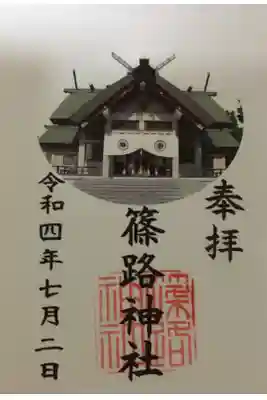 奉拝
篠路神社
令和四年七月二日